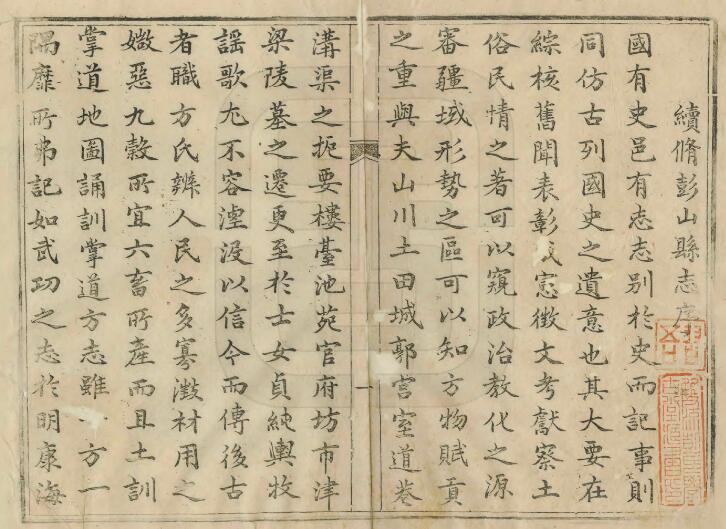 續脩彭山縣志序
國有史邑有志志別於史而記事則
同仿古列國史之遺意也其大要在
綜核舊聞表彰憲徵文考獻察土
俗民情之著可以窺政治教化之源
審疆域形勢之區可以知方物賦貢
之重與夫山川土田城郭宮室道巷
溝渠之扼要樓臺池苑官府坊市津
梁陵墓之遷更至於士女貞純輿牧
謡歌尤不容湮没以信今而傳後古
者職方氏辨人民之多寡澂材用之
媺惡九穀所宜六畜所產而且土訓
掌道地圖誦訓掌道方志雖一方一
隅靡所弗記如武功之志於明康海
一